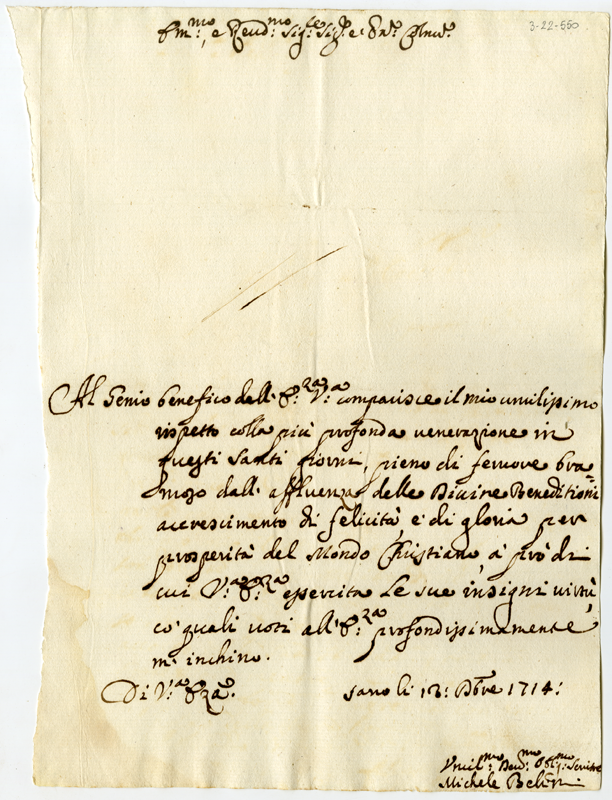 3-22-550
Em:mo, e Reud:mo Sig:re Sig:r e Pn:e Clmo:
Al Genio benefico dell' E:za V:a comparisce il mio umilissimo
rispetto colla più profonda venerazione in
questi Santi Giorni, pieno di fervore bra=
moso dall' affluenza delle Divine Beneditioni
accrescimento di felicità, e di gloria per
prosperità del Mondo Christiano, à prò di
cui V:a E:za essercita le sue insigni virtù,
co' quali voti all' E:za profondissimamente
m' inchino.
Di V:a Eza:
li 12: Xbre 1714:
Vmil:mo Deu:mo Oblig:mo Seruitre
Michele